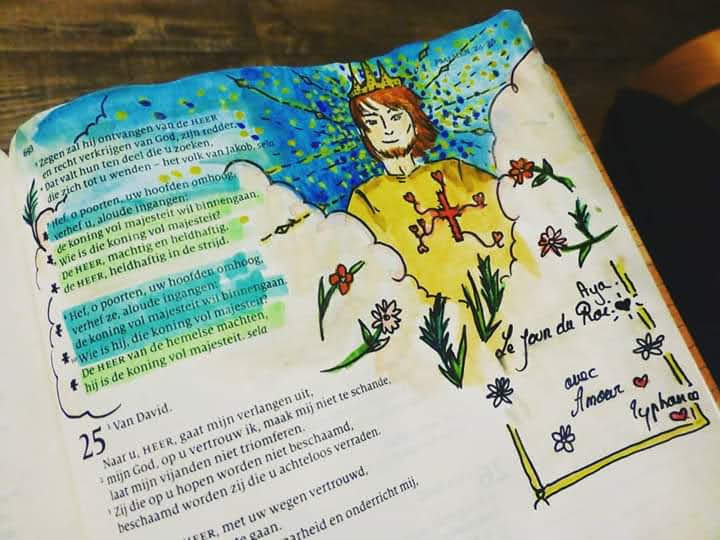 PSALMEN 24-25
690
5 zegen zal hij ontvangen van de HEER
en recht verkrijgen van God, zijn redder.
6 Dat valt hun ten deel die u zoeken,
die zich tot u wenden – het volk van Jakob. sela
Hef, o poorten, uw hoofden omhoog,
verhef u, aloude ingangen:
de koning vol majesteit wil binnengaan.
Wie is die koning vol majesteit?
De HEER, machtig en heldhaftig,
de HEER, heldhaftig in de strijd.
Hef, o poorten, uw hoofden omhoog,
verhef ze, aloude ingangen:
de koning vol majesteit wil binnengaan.
Wie is hij, die koning vol majesteit?
De HEER van de hemelse machten,
hij is de koning vol majesteit. sela
25 1 Van David.
Naar u, HEER, gaat mijn verlangen uit,
2 mijn God, op u vertrouw ik, maak mij niet te schande,
laat mijn vijanden niet triomferen.
3 Zij die op u hopen worden niet beschaamd,
beschaamd worden zij die u achteloos verraden.
HEER, met uw wegen vertrouwd,
te gaan.
waarheid en onderricht mij,
Aya
Le Jour du Roi
avec
Amour
Typhanee